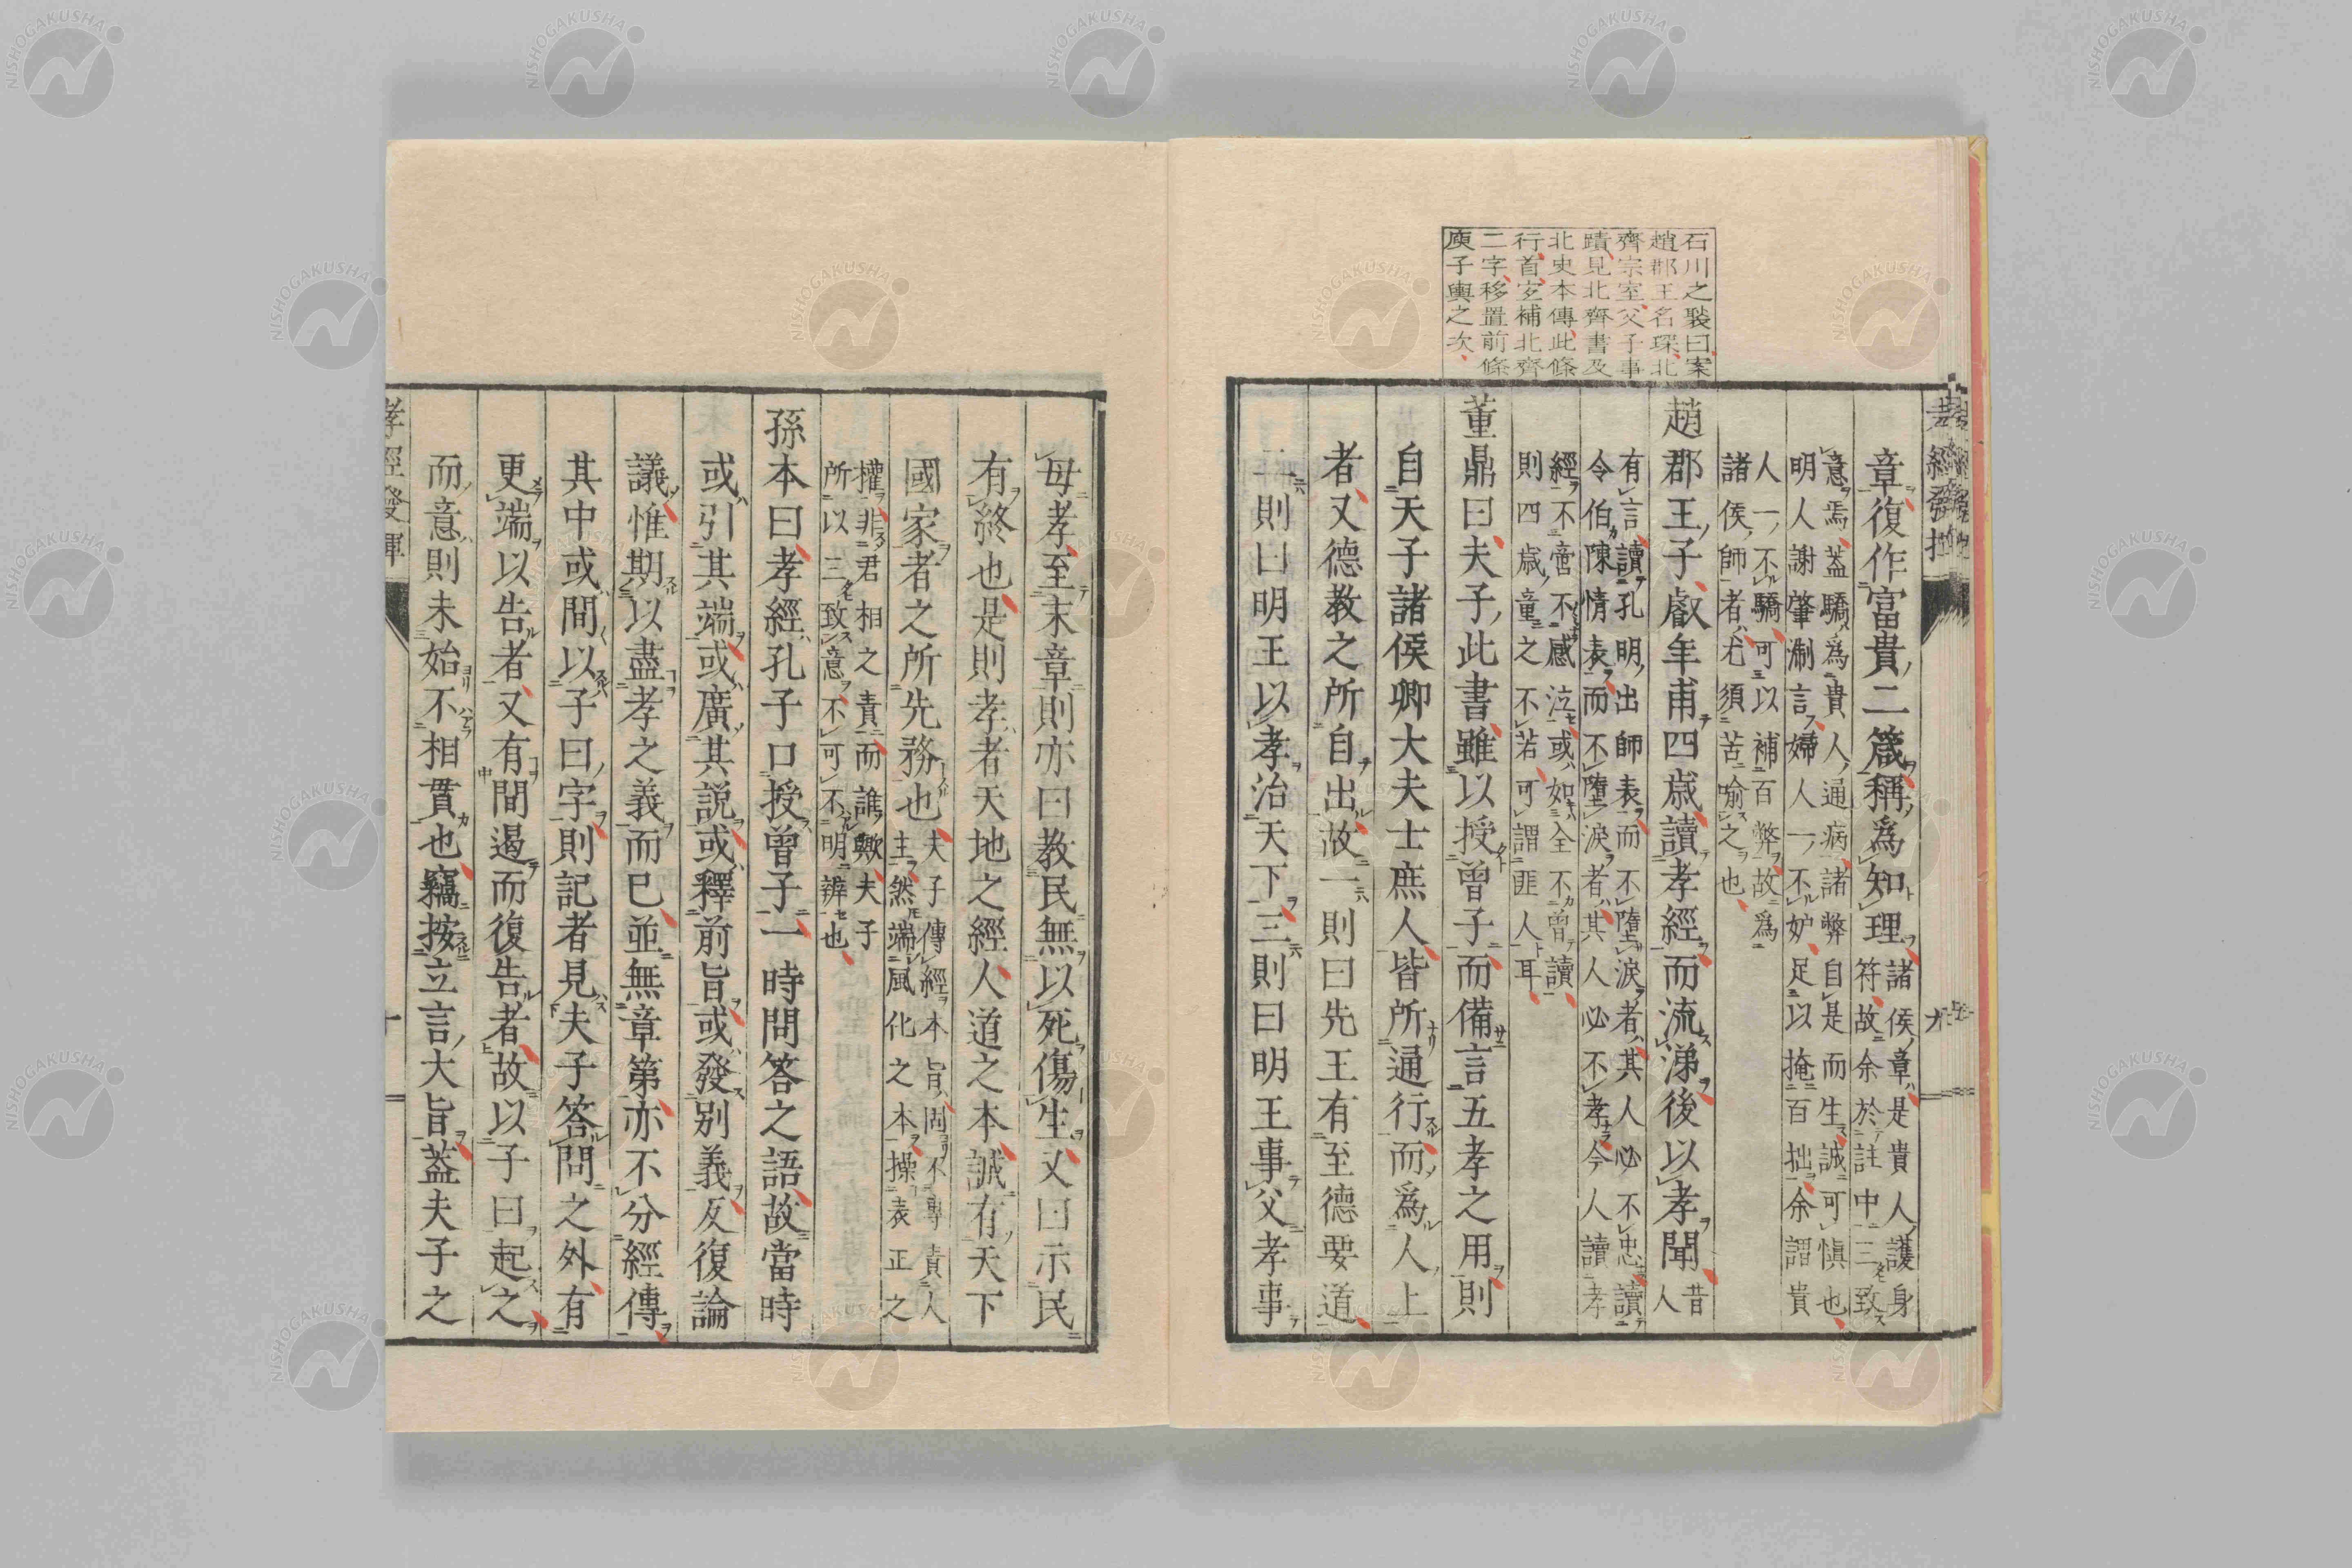 石川之褧曰案
趙郡王名琛北
齊宗室父子事
蹟見北齊書及
北史本傳此條
行首宐補北齊
二字移置前條
庾子輿之次
章復作富貴二箴稱爲知理
諸侯章是貴人護身
符故余於註中三致
意焉蓋驕爲貴人通病諸弊自是而生誠可愼也
明人謝肇淛言婦人一不妒足以掩百拙余謂貴
人一不驕可以補百弊故爲
諸侯師者尤須苦喻之也
趙郡王子叡年甫四歲讀孝經而流涕後以孝聞
昔
人
有言讀孔明出師表而不墮淚者其人必不忠讀
令伯陳情表而不墮淚者其人必不孝今人讀孝
經不啻不感泣或如全不曾讀
則四歲童之不若可謂匪人耳
董鼎曰夫子此書雖以授曾子而備言五孝之用則
自天子諸侯卿大夫士庶人皆所通行而爲人上
者又德教之所自出故一則曰先王有至德要道
二則曰明王以孝治天下三則曰明王事父孝事
母孝至末章則亦曰教民無以死傷生又曰示民
有終也是則孝者天地之經人道之本誠有天下
國家者之所先務也
夫子傳經本旨固不專責人
主然端風化之本操表正之
權非君相之責而誰歟夫子
所以三致意不可不明辨也
孫本曰孝經孔子口授曾子一時問答之語故當時
或引其端或廣其說或釋前旨或發別義反復論
議惟期以盡孝之義而已並無章第亦不分經傳
其中或間以子曰字則記者見夫子答問之外有
更端以告者又有間遏而復告者故以子曰起之
而意則未始不相貫也竊按立言大旨蓋夫子之
孝經發揮